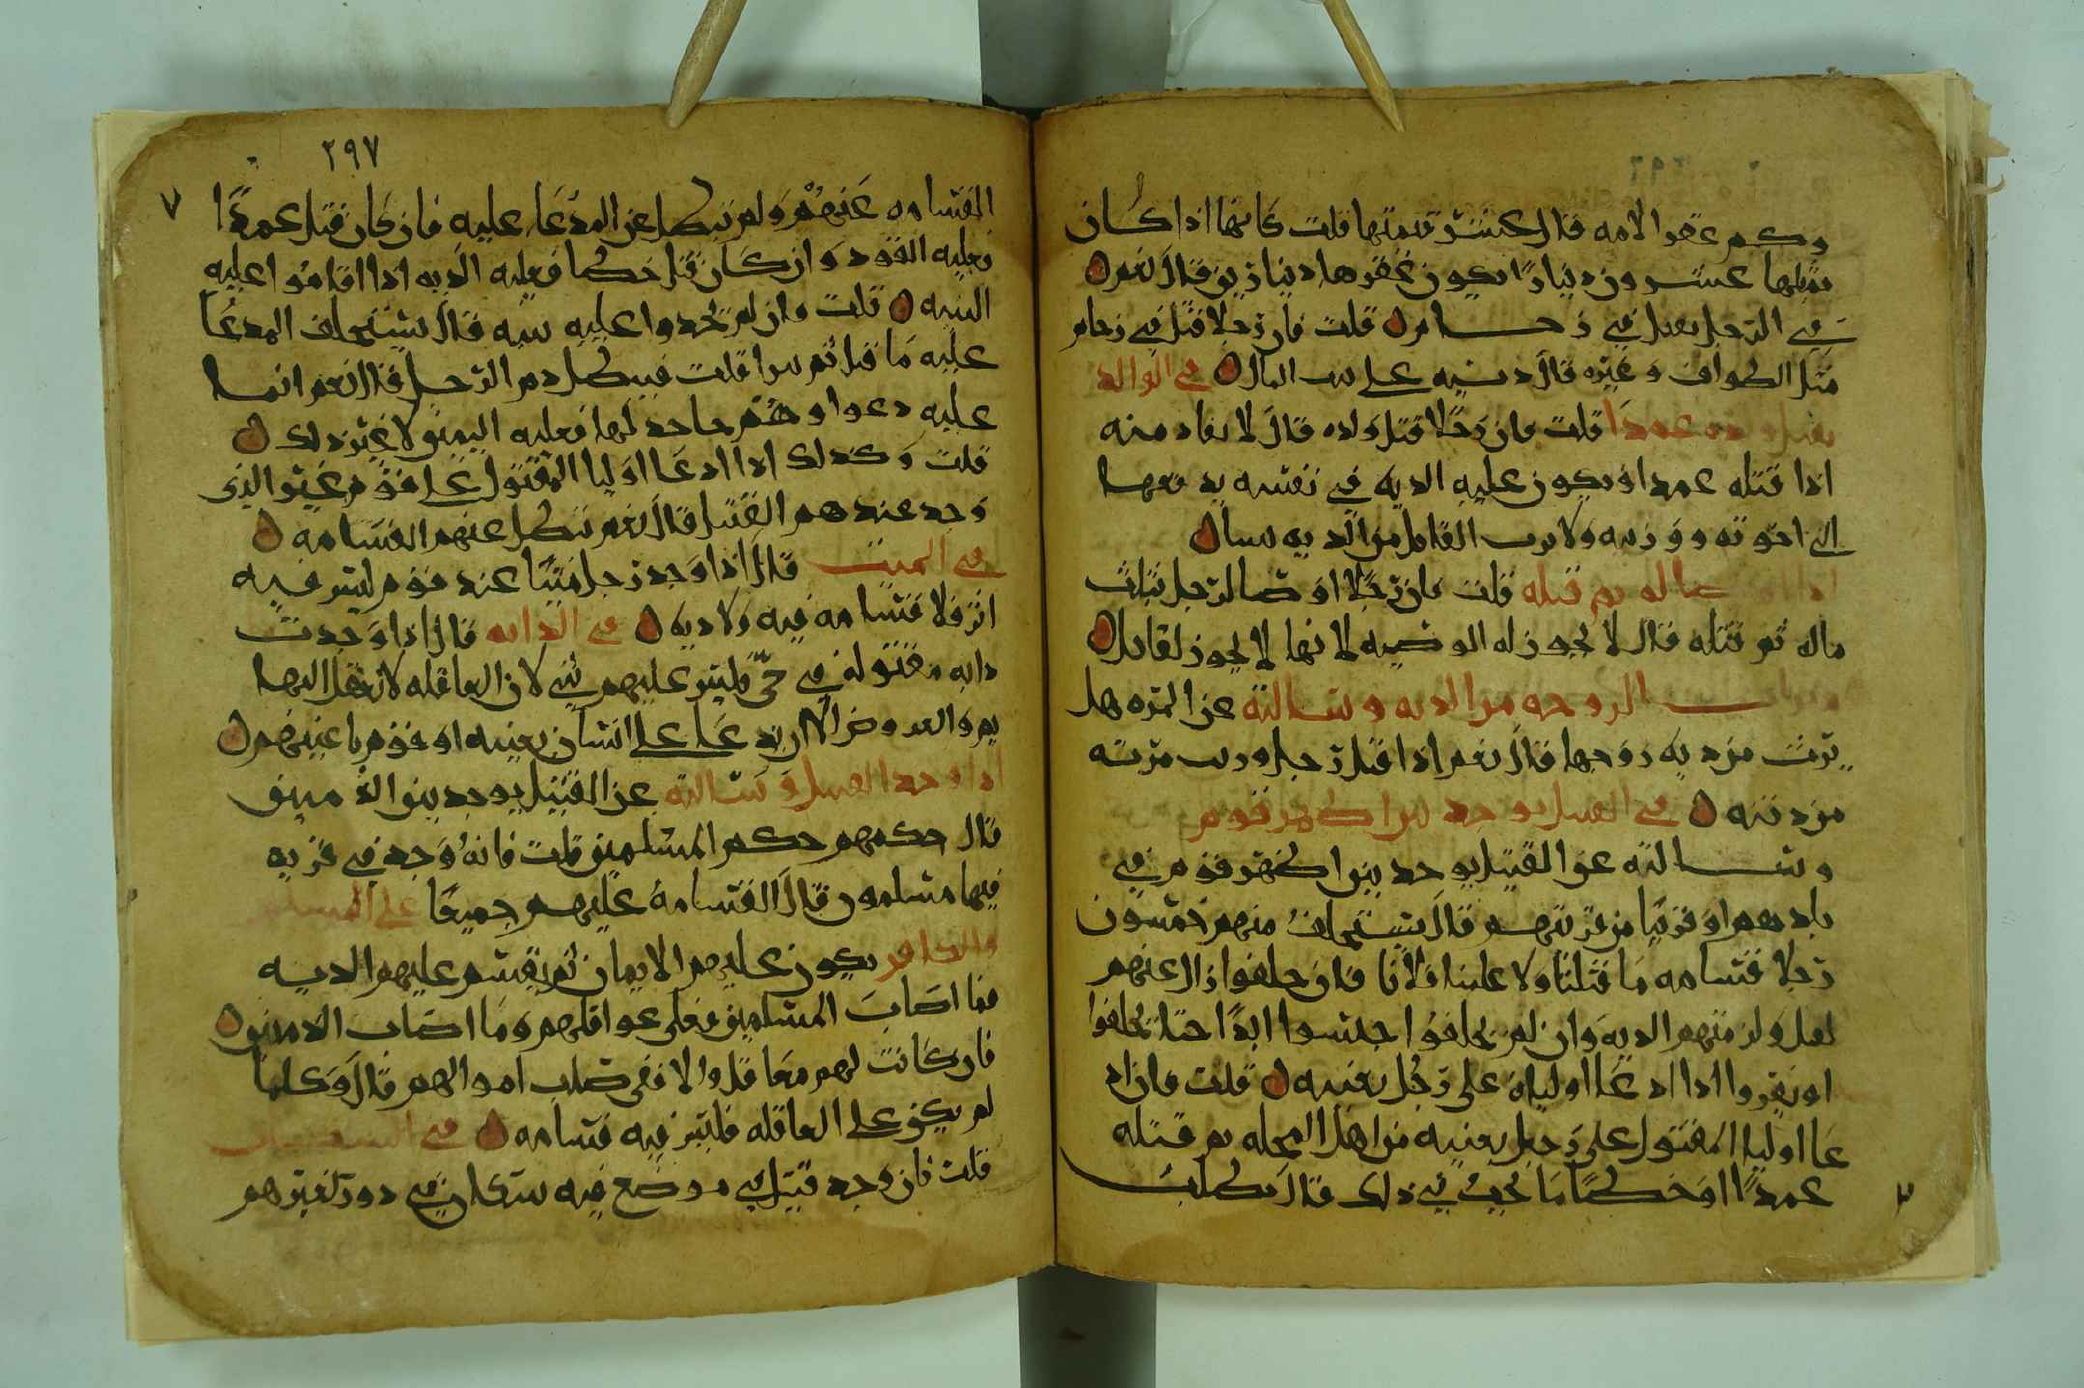 وكم عقر الامه قال عشر قيمتها قلت كانها اذا كان
مثلها عشرون دينارا يكون عقرها دينارين قال نعم
في الرجل يقتل في زحام قلت فان رجلا قتل في زحام
مثل الطواف وغيره قال ديته على بيت المال في الوالد
يقتل ولده عمدا قلت فان رجلا قتل ولده قال لا يقاد منه
اذا قتله عمدا ويكون عليه الديه في نفسه يدفعها
الى اخوته وورثته ولا يرث القاتل من الديه شيا
اذا اوصا له ثم قتله قلت فان رجلا اوصا لرجل بثلث
ماله ثم قتله قال لا يجوز له الوصيه لانها لا يجوز لقاتل
الزوجه من الديه وسالته عن المره هل
ترث من ديه زوجها قال نعم اذا قتل رجل ورثت مرته
من ديته في القتيل يوجد بين اظهر قوم
وسالته عن القتيل يوجد بين اظهر قوم في
بلدهم او قريبا من قريتهم قال يستحلف منهم خمسون
رجلا قسامه ما قتلنا ولا علمنا قاتلا فان حلفوا زال عنهم
القتل ولزمتهم الديه وان لم يحلفوا حبسوا ابدا حتا يحلفوا
او يقروا اذا ادعا اولياه على رجل بعينه قلت فان اد
عا اوليا المقتول على رجل بعينه من اهل المحله ثم قتله
عمدا او خطا ما يجب في ذلك قال تبطلت
٢٩٧
القسامه عنهم ولم تبطل عن المدعا عليه فان كان قتل عمدا
فعليه القود وان كان قتل خطا فعليه الديه اذا اقاموا عليه
البينه قلت وان لم يجدوا عليه بينه قال يستحلف المدعا
عليه ما قتل ثم يبرا قلت فيبطل دم الرجل قال نعم انما
عليه دعوا وهم جاحد لها فعليه اليمين لا غير ذلك
قلت وكذلك اذا ادعا اوليا المقتول على قوم غير الذي
وجد عندهم القتيل قال نعم تبطل عنهم القسامه
في الميت قال اذا وجد رجل ميتا عند قوم ليس فيه
اثر فلا قسامه فيه ولا ديه في الدابه قال اذا وجدت
دابه مقتوله في حي فليس عليهم شي لان العاقله لا تعقل البها
يم والعروض الا ان يدعا على انسان بعينه او قوم باعينهم
اذا وجد القتيل وسالته عن القتيل يوجد بين الذميين
قال حكمهم حكم المسلمين قلت فانه وجد في قريه
فيها مسلمون قال القسامه عليهم جميعا على المسلم
والكافر يكون عليهم الايمان ثم يقسم عليهم الديه
فما اصاب المسلمين فعلى عواقلهم وما اصاب الذميين
فان كانت لهم معاقل والا ففي صلب اموالهم قال وكلما
لم يكن على العاقله فليس فيه قسامه في السفينه
قلت فان وجد قتيل في موضع فيه سكان في دور لغيرهم